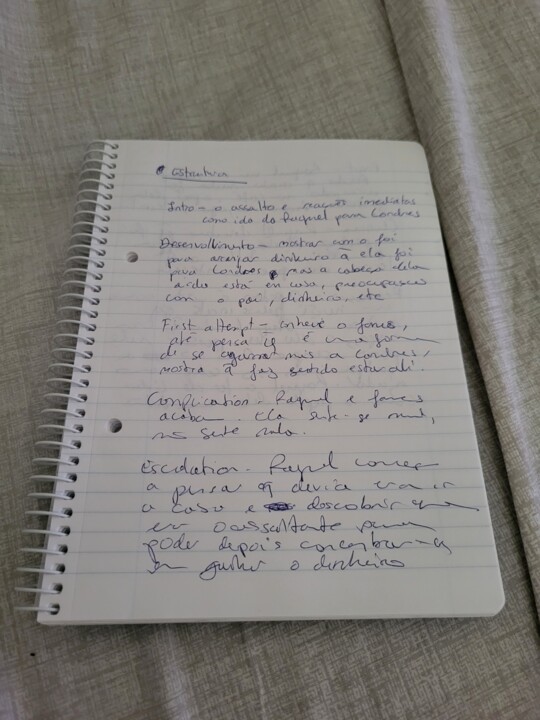 Estrutura
Intro - o assalto e reações imediatas
como ida do Raquel para Londres
Desenvolvimento - mostrar como foi
para arranjar dinheiro q ela foi
para Londres, mas a cabeça dela
ainda está em casa, preocupações
com o pai, dinheiro, etc
First attempt - conhece o
até q é uma forma
de se agarrar mais a Londres,
mostra q faz sentido estar ali.
Complication - Raquel e
acabam. Ela sente-se mal,
não sente nada.
Escalation - Raquel começa
a pensar q devia era ir
a casa e descobrir quem
era o assaltante para
poder depois concentrar-se
em ganhar o dinheiro